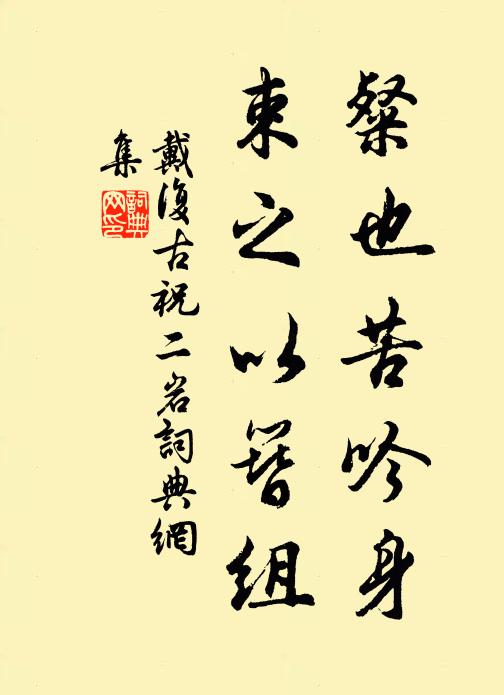 粲也苦吟身
束之以簪組
戴復古祝二岩詞典網
集
詞典網印